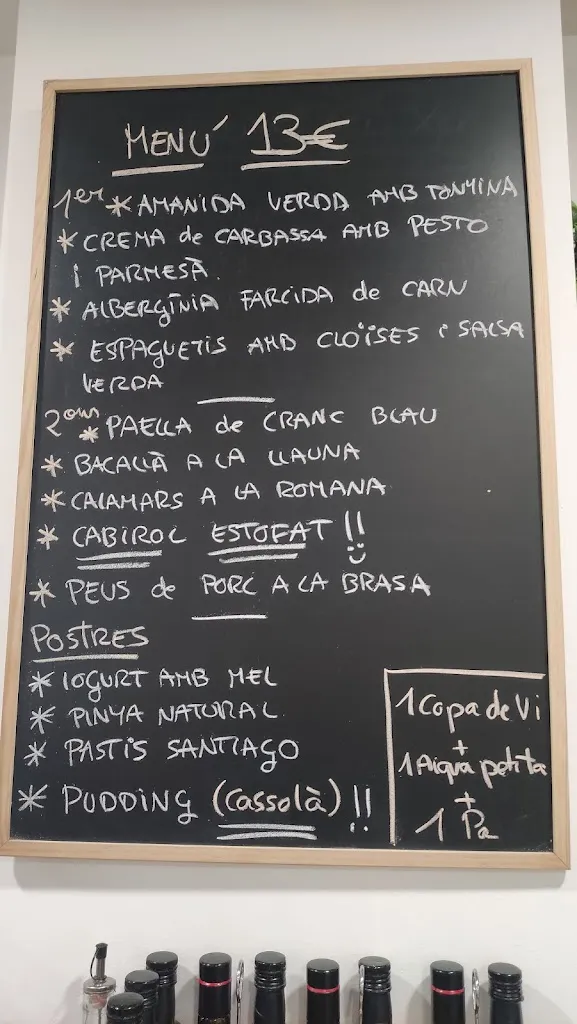 MENÚ 13€
1er * AMANIDA VERDA AMB TONYINA
* CREMA de CARBASSA AMB PESTO
i PARMESÀ.
* ALBERGÍNIA FARCIDA de CARN
* ESPAGUETIS AMB CLOÏSES i SALSA
VERDA
2on * PAELLA de CRANC BLAU
* BACALLÀ A LA LLAUNA
* CALAMARS A LA ROMANA
* CABIROL ESTOFAT !!
* PEUS de PORC A LA BRASA
POSTRES
* IOGURT AMB MEL
* PINYA NATURAL
* PASTIS SANTIAGO
* PUDDING (Cassolà) !!
1 Copa de Vi
+
1 Aigua petita
+
1 Pa